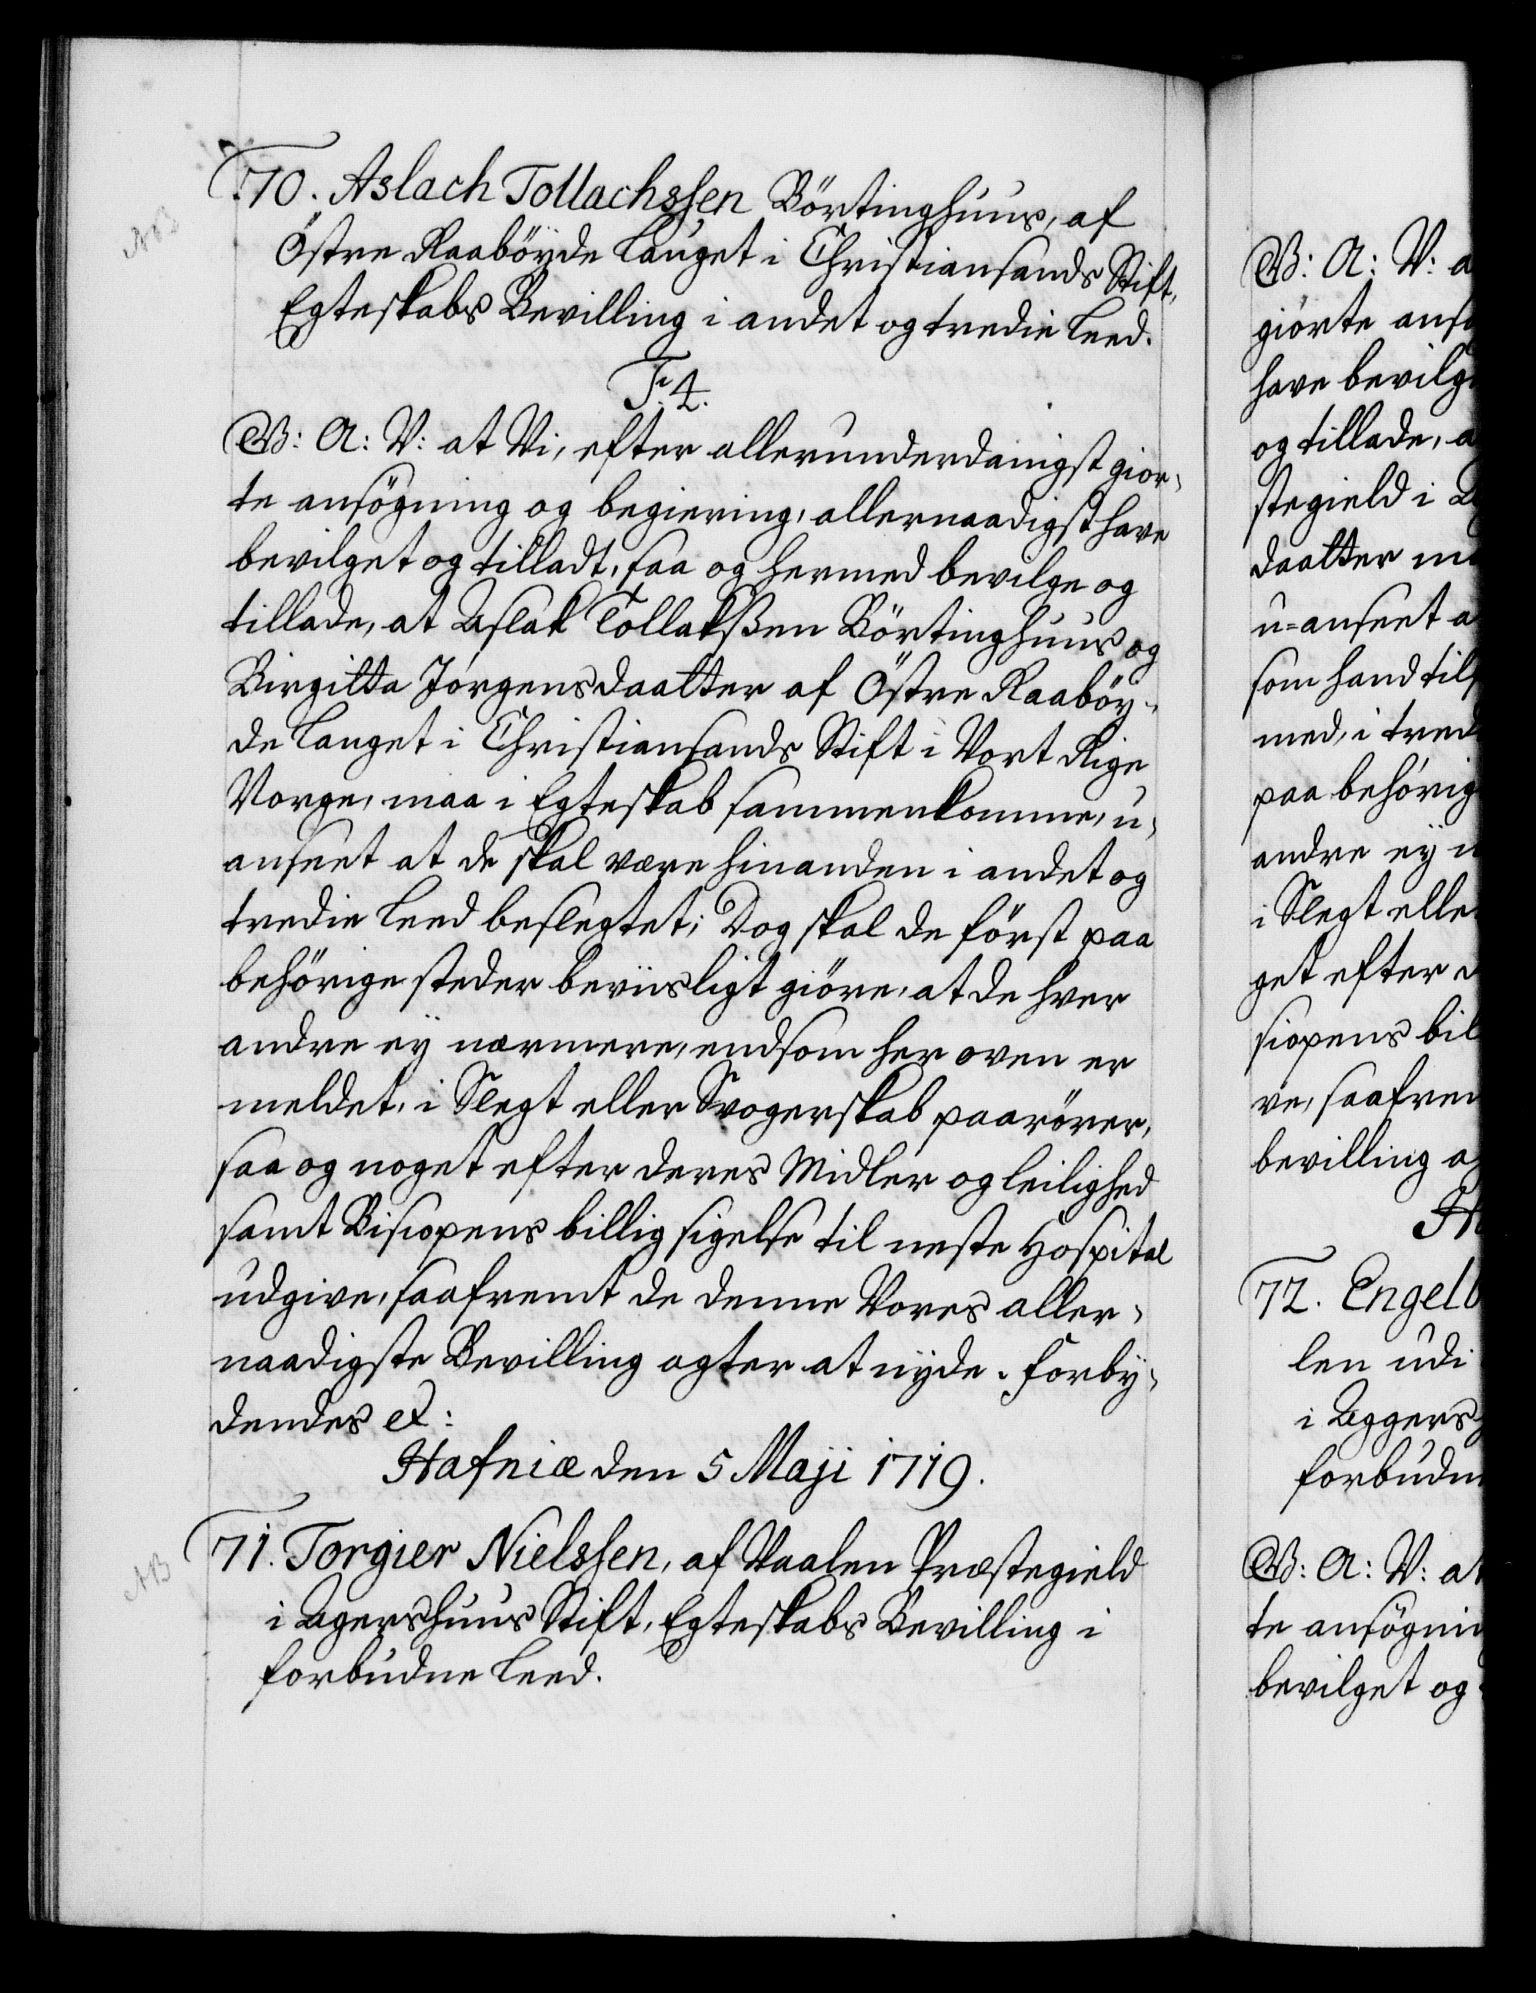 70. Aslach Tollachssen Börtinghuus, af
Östre Raabÿde Lauget i Christiansands Stift,
Egteskabs Bevilling i andet og tredie Leed.
F: 4.
G: A: V: at Vi, efter allerunderdanigst gior-
te ansögning og begiering, allernaadigst have
bevilget og tilladt, saa og hermed bevilge og
tillade, at Aslak Tollakssen Börtinghuus og
Birgitta Jörgensdaatter af Östre Raaböy-
de Lauget i Christiansands Stift i Vort Rige
Norge, maa i Egteskab sammenkomme, u-
anseet at de skal være hinanden i andet og
tredie Leed beslegtet; Dog skal de först paa
behörige steder beviisligt giöre, at de hver
andre eÿ nærmere, end som her oven er
meldet, i Slegt eller Svogerskab paarörer,
saa og noget efter deres Midler og leilighed
samt Bisiopens billig sigelse til neste Hospital
udgive, saafremt de denne Vores aller-
naadigste Bevilling agter at nÿde. Forbÿ-
dendes et:
Hafniæ den 5 Maji 1719.
71. Torgier Nielssen, af Vaalen Præstegield
i Agershuus Stift, Egteskabs Bevilling i
forbudne Leed.
G: A: V: a
giörte ansö
have bevilge
og tillade, a
stegield i A
daatter m
u-anseet a
som hand til
med, i tred
paa behörig
andre eÿ n
i Slegt elle
get efter d
siopens bil
ve, saafrem
bevilling a
H
72. Engelb
len udi
i Aggers
forbudn
G: A: V: at
te ansögni
bevilget og